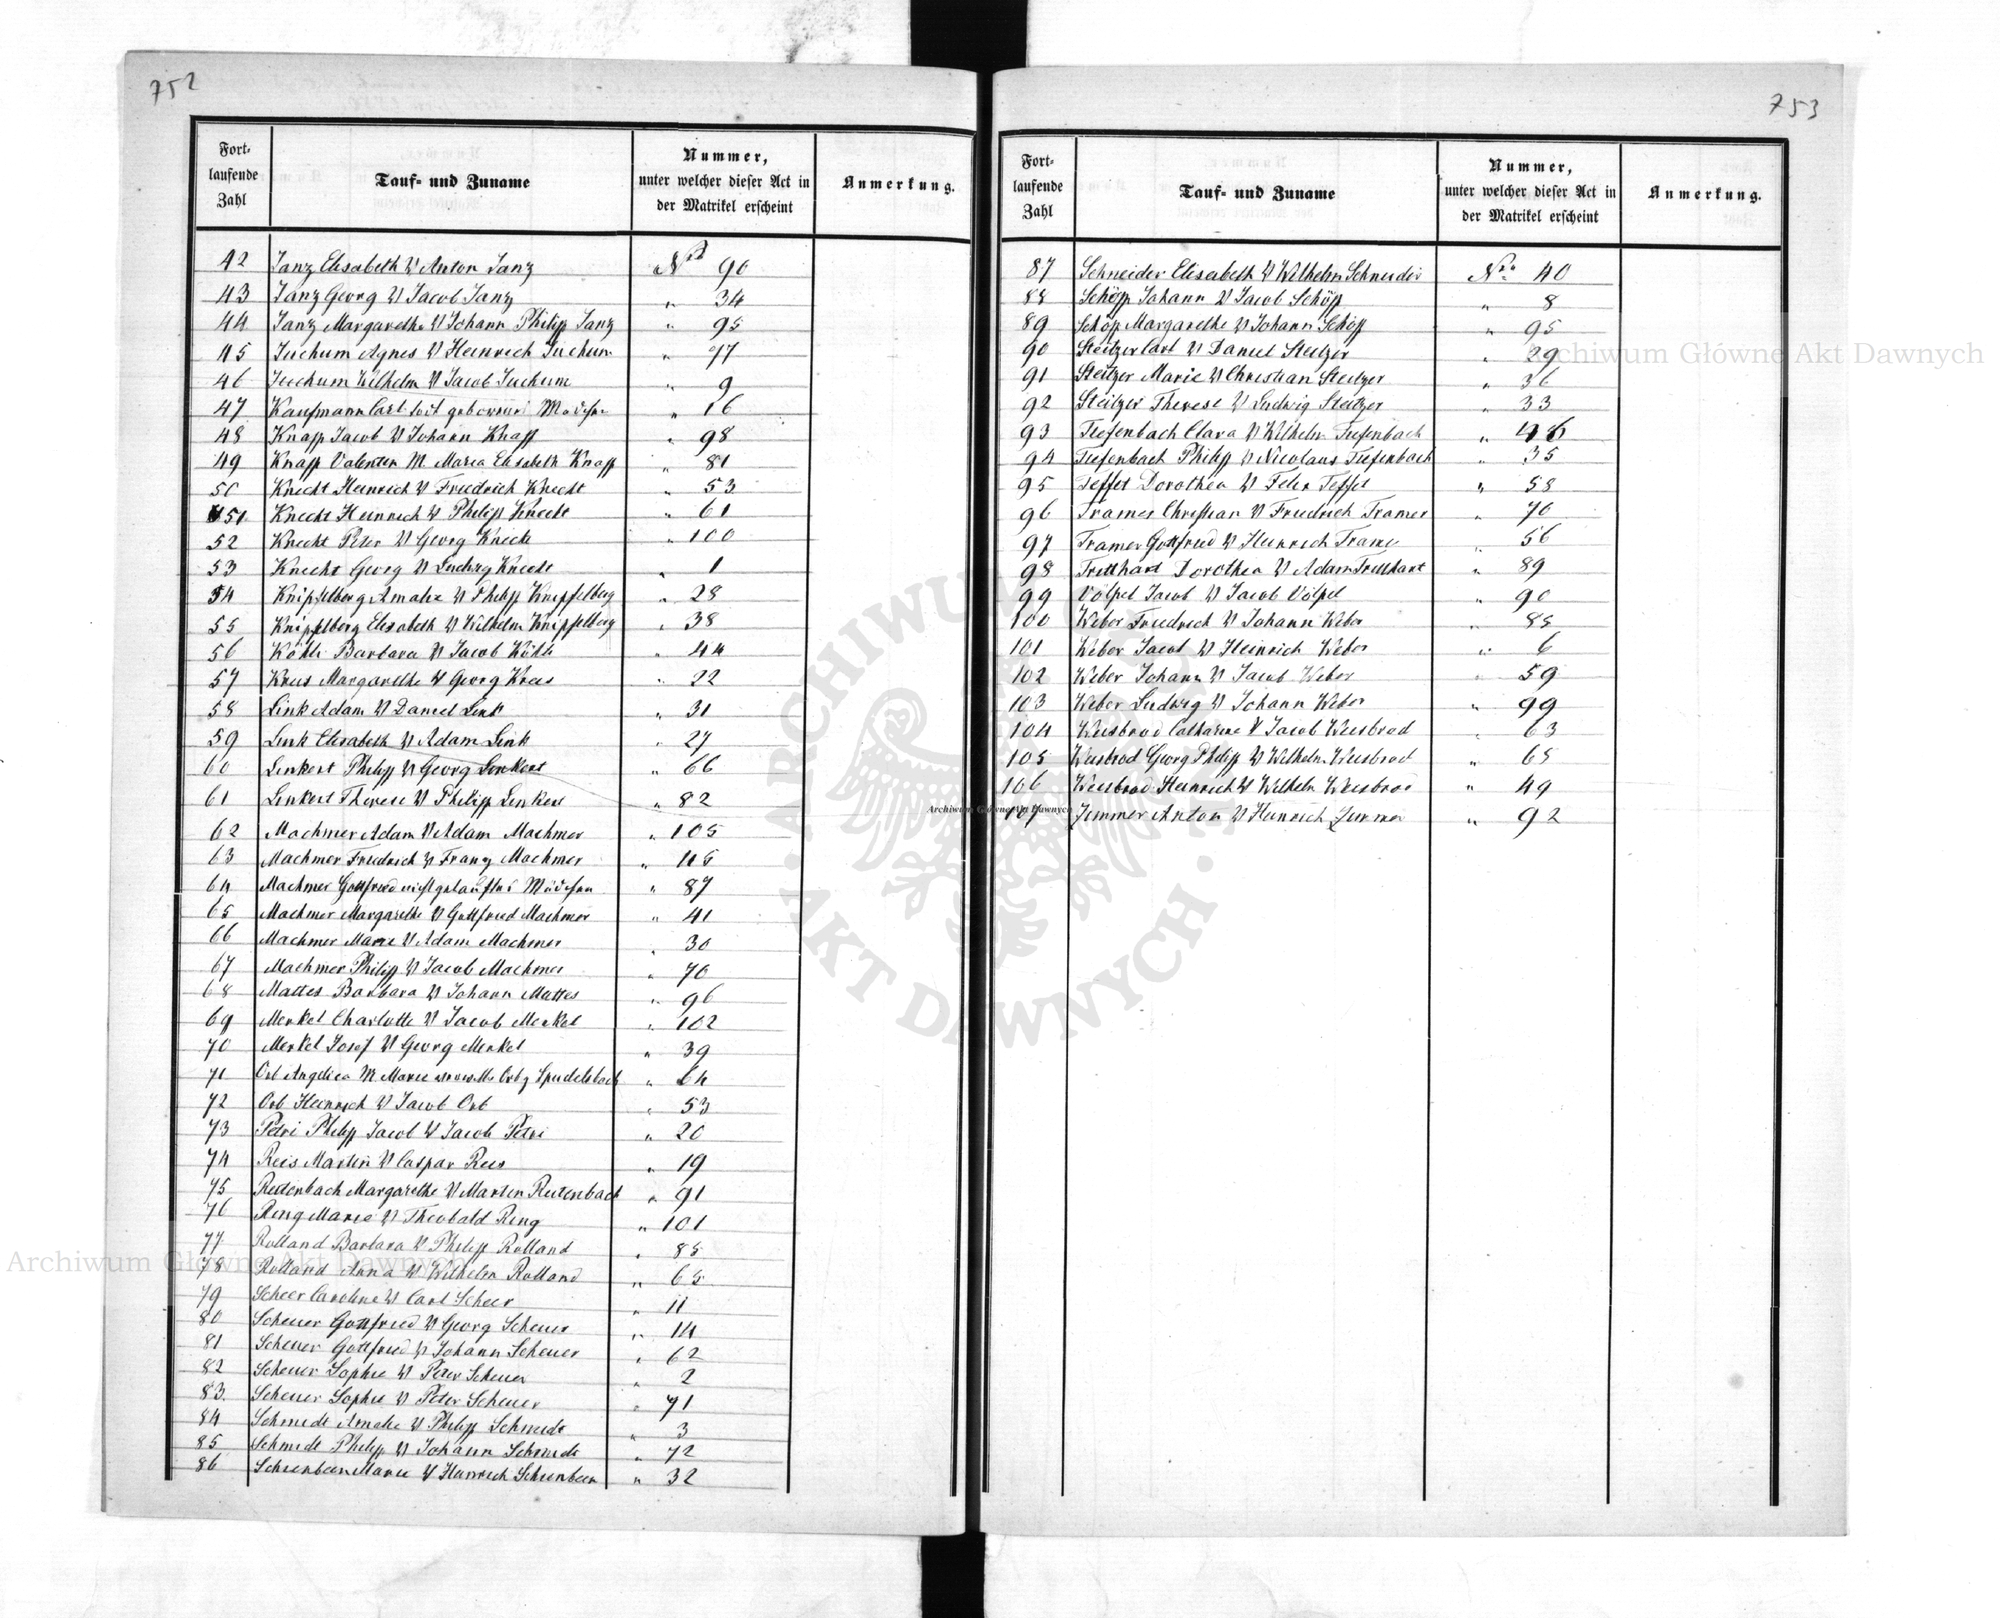 752
Fort-
laufende
Zahl
Tauf- und Zuname
Nummer,
unter welcher dieser Act in
der Matrikel erscheint
Anmerkung.
42 Janz Elisabeth V Anton Janz No 90
43 Janz Georg V Jacob Janz " 34
44 Janz Margarethe V Johann Philipp Janz " 95
45 Juchum Agnes V Heinrich Juchum " 77
46 Juchum Wilhelm V Jacob Juchum " 9
47 Kaufmann Carl " 16
48 Knapp Jacob V Johann Knapp " 98
49 Knapp Valentin M. Maria Elisabeth Knapp " 81
50 Knecht Heinrich V Friedrich Knecht " 53
51 Knecht Heinrich V Philipp Knecht " 61
52 Knecht Peter V Georg Knecht " 100
53 Knecht Georg V Ludwig Knecht " 1
54 Knipfelberg Amalie V Philipp Knipfelberg " 28
55 Knipfelberg Elisabeth V Wilhelm Knipfelberg " 38
56 Köhli Barbara V Jacob Köhli " 44
57 Kreis Margarethe V Georg Kreis " 22
58 Link Adam V Daniel Link " 31
59 Link Elisabeth V Adam Link " 27
60 Linkert Philipp V Georg Linkert " 66
61 Linkert Therese V Philipp Linkert " 82
62 Machmer Adam V Adam Machmer " 105
63 Machmer Friedrich V Franz Machmer "
64 Machmer Gottfried " 87
65 Machmer Margarethe V Gottfried Machmer " 41
66 Machmer Marie V Adam Machmer " 30
67 Machmer Philipp V Jacob Machmer " 70
68 Mattes Barbara V Johann Mattes " 96
69 Merkel Charlotte V Jacob Merkel " 102
70 Merkel Josef V Georg Merkel " 39
71 Orb Angelica M Marie Orb g Spudelsbach " 64
72 Orb Heinrich V Jacob Orb " 53
73 Petri Philipp Jacob V Jacob Petri " 20
74 Reis Martin V Caspar Reis " 19
75 Reitenbach Margarethe V Martin Reitenbach " 91
76 Ring Marie V Theobald Ring " 101
77 Rolland Barbara V Philipp Rolland " 85
78 Rolland Anna V Wilhelm Rolland " 65
79 Scheer Caroline V Carl Scheer " 11
80 Scheuer Gottfried V Georg Scheuer " 14
81 Scheuer Gottfried V Johann Scheuer " 62
82 Scheuer Sophie V Peter Scheuer " 2
83 Scheuer Sophie V Peter Scheuer " 71
84 Schmidt Amalie V Philipp Schmidt " 3
85 Schmidt Philipp V Johann Schmidt " 72
86 Schienbein Marie V Heinrich Schienbein " 32
753
Fort-
laufende
Zahl
Tauf- und Zuname
Nummer,
unter welcher dieser Act in
der Matrikel erscheint
Anmerkung.
87 Schneider Elisabeth V Wilhelm Schneider No 40
88 Schöpp Johann V Jacob Schöpp " 8
89 Schöpp Margarethe V Johann Schöpp " 95
90 Steitzer Carl V Daniel Steitzer " 29
91 Steitzer Marie V Christian Steitzer " 36
92 Steitzer Therese V Ludwig Steitzer " 33
93 Tiefenbach Clara V Wilhelm Tiefenbach "
94 Tiefenbach Philipp V Nicolaus Tiefenbach " 35
95 Teffet Dorothea V Felix Teffet " 58
96 Tramer Christian V Friedrich Tramer " 70
97 Tramer Gottfried V Heinrich Tramer " 56
98 Tritthart Dorothea V Adam Tritthart " 89
99 Völpel Jacob V Jacob Völpel " 90
100 Weber Friedrich V Johann Weber " 85
101 Weber Jacob V Heinrich Weber " 6
102 Weber Johann V Jacob Weber " 59
103 Weber Ludwig V Johann Weber " 99
104 Weisbrod Catharine V Jacob Weisbrod " 63
105 Weisbrod Georg Philipp V Wilhelm Weisbrod " 65
106 Weisbrod Heinrich V Wilhelm Weisbrod " 49
107 Zimmer Anton V Heinrich Zimmer " 92
Archiwum Główne Akt Dawnych
Archiwum Główne Akt Dawnych
Archiwum Główne Akt Dawnych
ARCHIWUM · AKT DAWNYCH ·